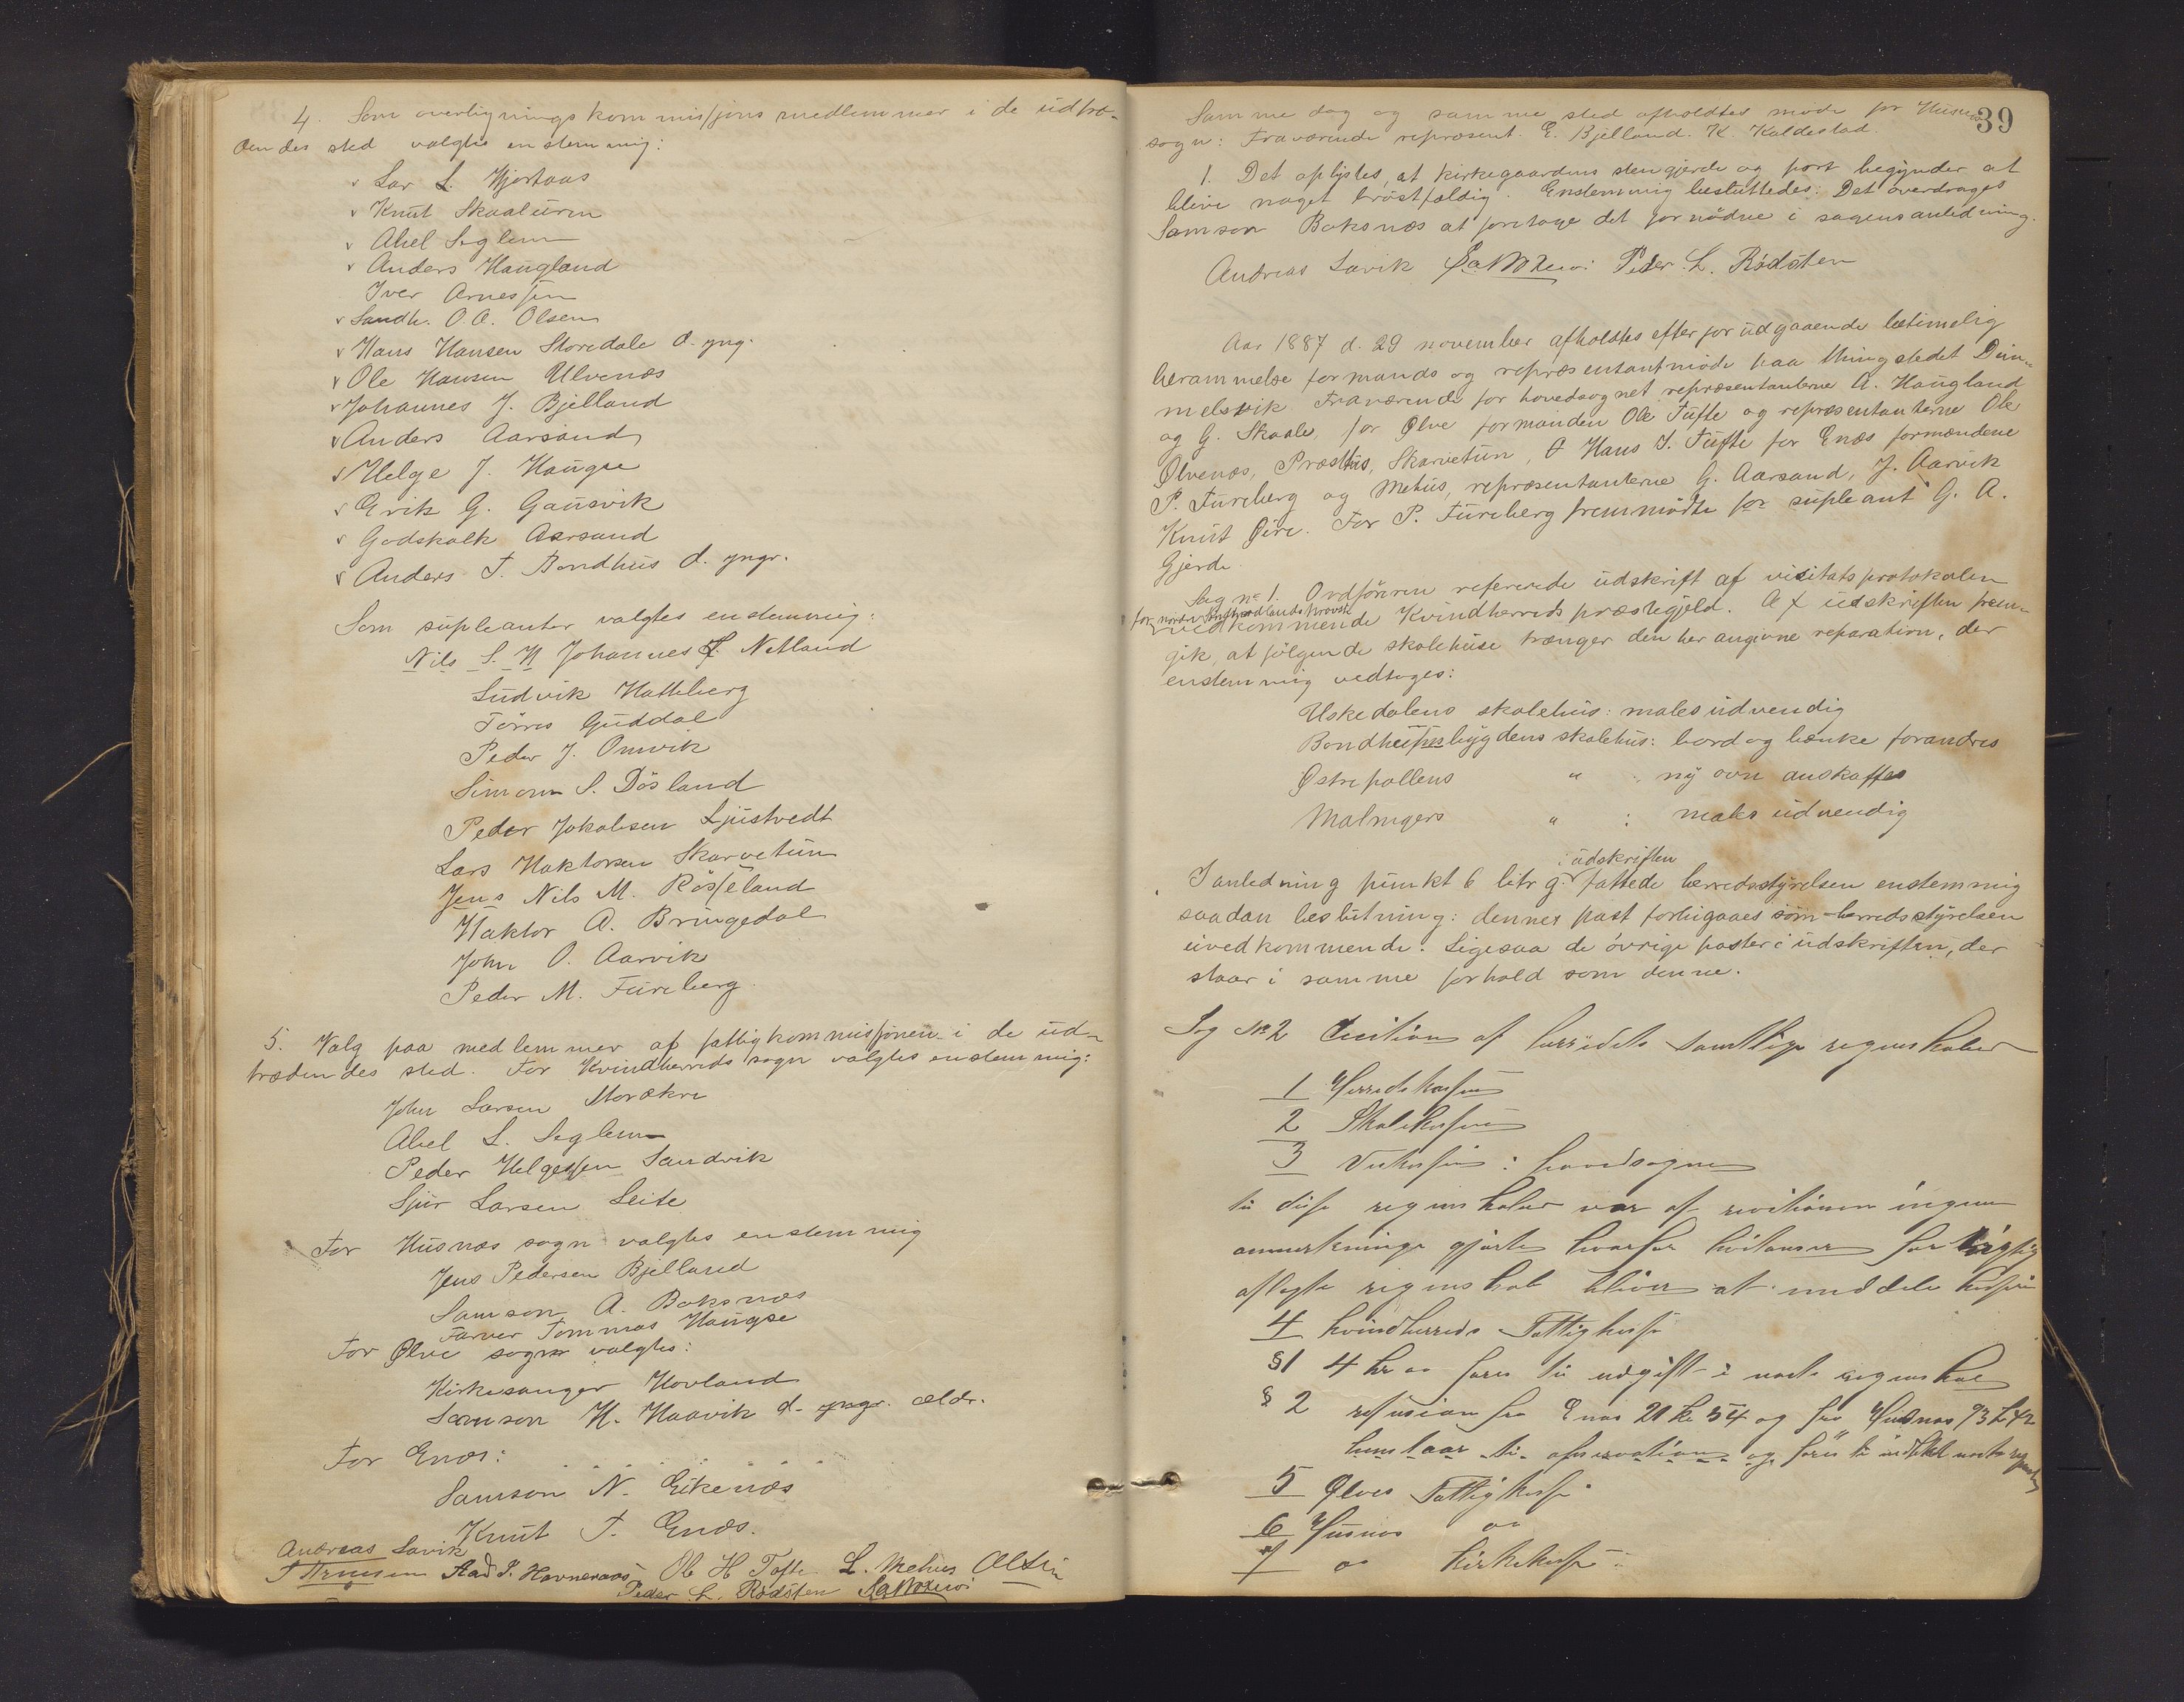 4. Som overligningskommissjons medlemmer i de udtræ-
dendes sted valgtes enstemmig:
v Lar L. Hjortaas
v Knut Skaaluren
v Abel Seglem
v Anders Haugland
Iver Arnessen
v Landh. O. A. Olsen
v Hans Hansen Storedale d. yng.
v Ole Hansen Ulvenæs
v Johannes J. Bjelland
v Anders Aarsand
v Helge J. Haugse
v Erik G. Gausvik
v Godskalk Aarsand
v Anders T. Bondhus d. yngr.
Som supleanter valgtes enstemmig:
Nils S. H Johannes J. Netland
Ludvik Hatteberg
Törres Guddal
Peder J. Omvik
Simon S. Dösland
Peder Jakobsen Ljustvedt
Lars Haktorsen Skarvetun
Jens Nils M. Rösseland
Haktor A. Bringedal
John O. Aarvik
Peder M. Fureberg
5. Valg paa medlemmer af fattigkommissjonen i de ud-
trædendes sted. For Kvindherreds sogn valgtes enstemmig:
John Larsen Morækre
Abel L. Seglem
Peder Helgessen Sandvik
Sjur Larsen Leite
For Husnæs sogn valgtes enstemmig
Jens Pedersen Bjelland
Samson A. Boksnæs
Farver Tommas Haugse
For Ølve sogn valgtes:
Kirkesanger Hovland
Samson H. Haavik d. yngr. ældr.
For Enæs:
Samson N. Eikenæs
Knut T. Enæs.
Andreas Lavik
Aad J. Havneraas Ole H Tofte L. Mehus
Peder L. Rödsten
39
Samme dag og samme sted afholdtes møde for Husnæs
sogn: Fraværende repræsent. E. Bjelland. K. Kaldestad.
1. Det oplystes, at kirkegaardens stengjerde og port begynder at
blive noget bröstfældig. Enstemmig besluttedes: Det overdrages
Samson Boksnæs at foretage det fornödne i sagens anledning.
Andreas Lavik Peder L. Rödsten
Aar 1887 d. 29 november afholdtes efter forudgaaende betimelig
berammelse formands og repræsentantmöde paa thingstedet Dim-
melsvik. Fraværende for hovedsognet repræsentanterne A. Haugland
og G. Skaale, for Ølve formanden Ole Tufte og repræsentanterne Ole
Ølvenæs, Præsthus, Skarvetun, & Hans J. Tufte for Enæs formændene
P. Fureberg og Mehus, repræsentanterne G. Aarsand, J. Aarvik
Knut Øire. For P. Fureberg fremmödte for supleant G. A.
Gjerde
Sag No 1. Ordföreren refererede udskrift af visitatsprotokolen
for nordre Söndhordlands provsti
vedkommende Kvindherreds præstegjeld. Af udskriften frem-
gik, at fölgende skolehuse trænger den her angivne reparation, der
enstemmig vedtoges:
Uskedalens skolehus: males udvendig
Bondhusbygdens skolehus: bord og bænke forandres
Østrepollens " : ny ovn anskaffes
Malmgers " : males udvendig
i udskriften
I anledning punkt 6 litr g. fattede herredsstyrelsen enstemmig
saadan beslutning: denne post forbigaaes som herredsstyrelsen
uvedkommende. Ligesaa de övrige poster i udskriften, der
staar i samme forhold som denne.
Sag No 2 Decition af herredets samtlige regnskaber
1 Herredskassen
2 Skolekassen
3 Veikassen i hovedsognet
til disse regnskaber var af revisionen ingen
anmerkninger gjorte hvorfor kvitanser for rigtig
aflagte regnskab bliver at meddele
4 Kvindherreds Fattigkasse
§1 4 kr oo föres til udgift i næste regnskab
§ 2 refusion fra Enæs 21 kr 54 og fra Husnæs 93 kr 42
henstaar til observation og föres til indtægt næste
5 Ølves Fattigkasse
6 Husnæs oo
7 oo Kirkekasse